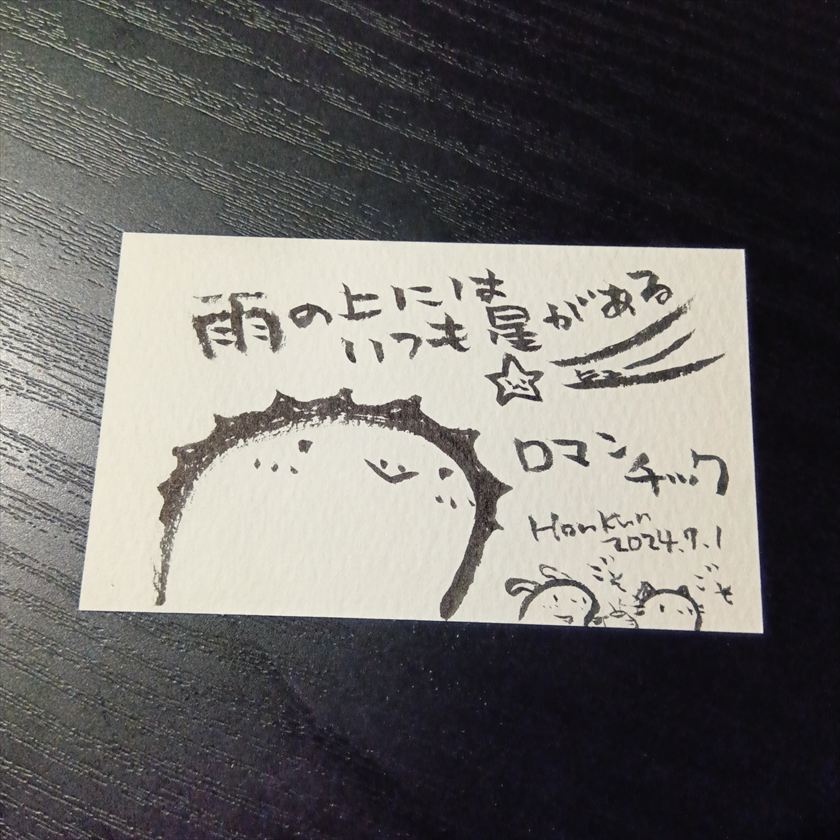 雨の上には
いつも星がある
ロマンチック
Honkun
2024.7.1